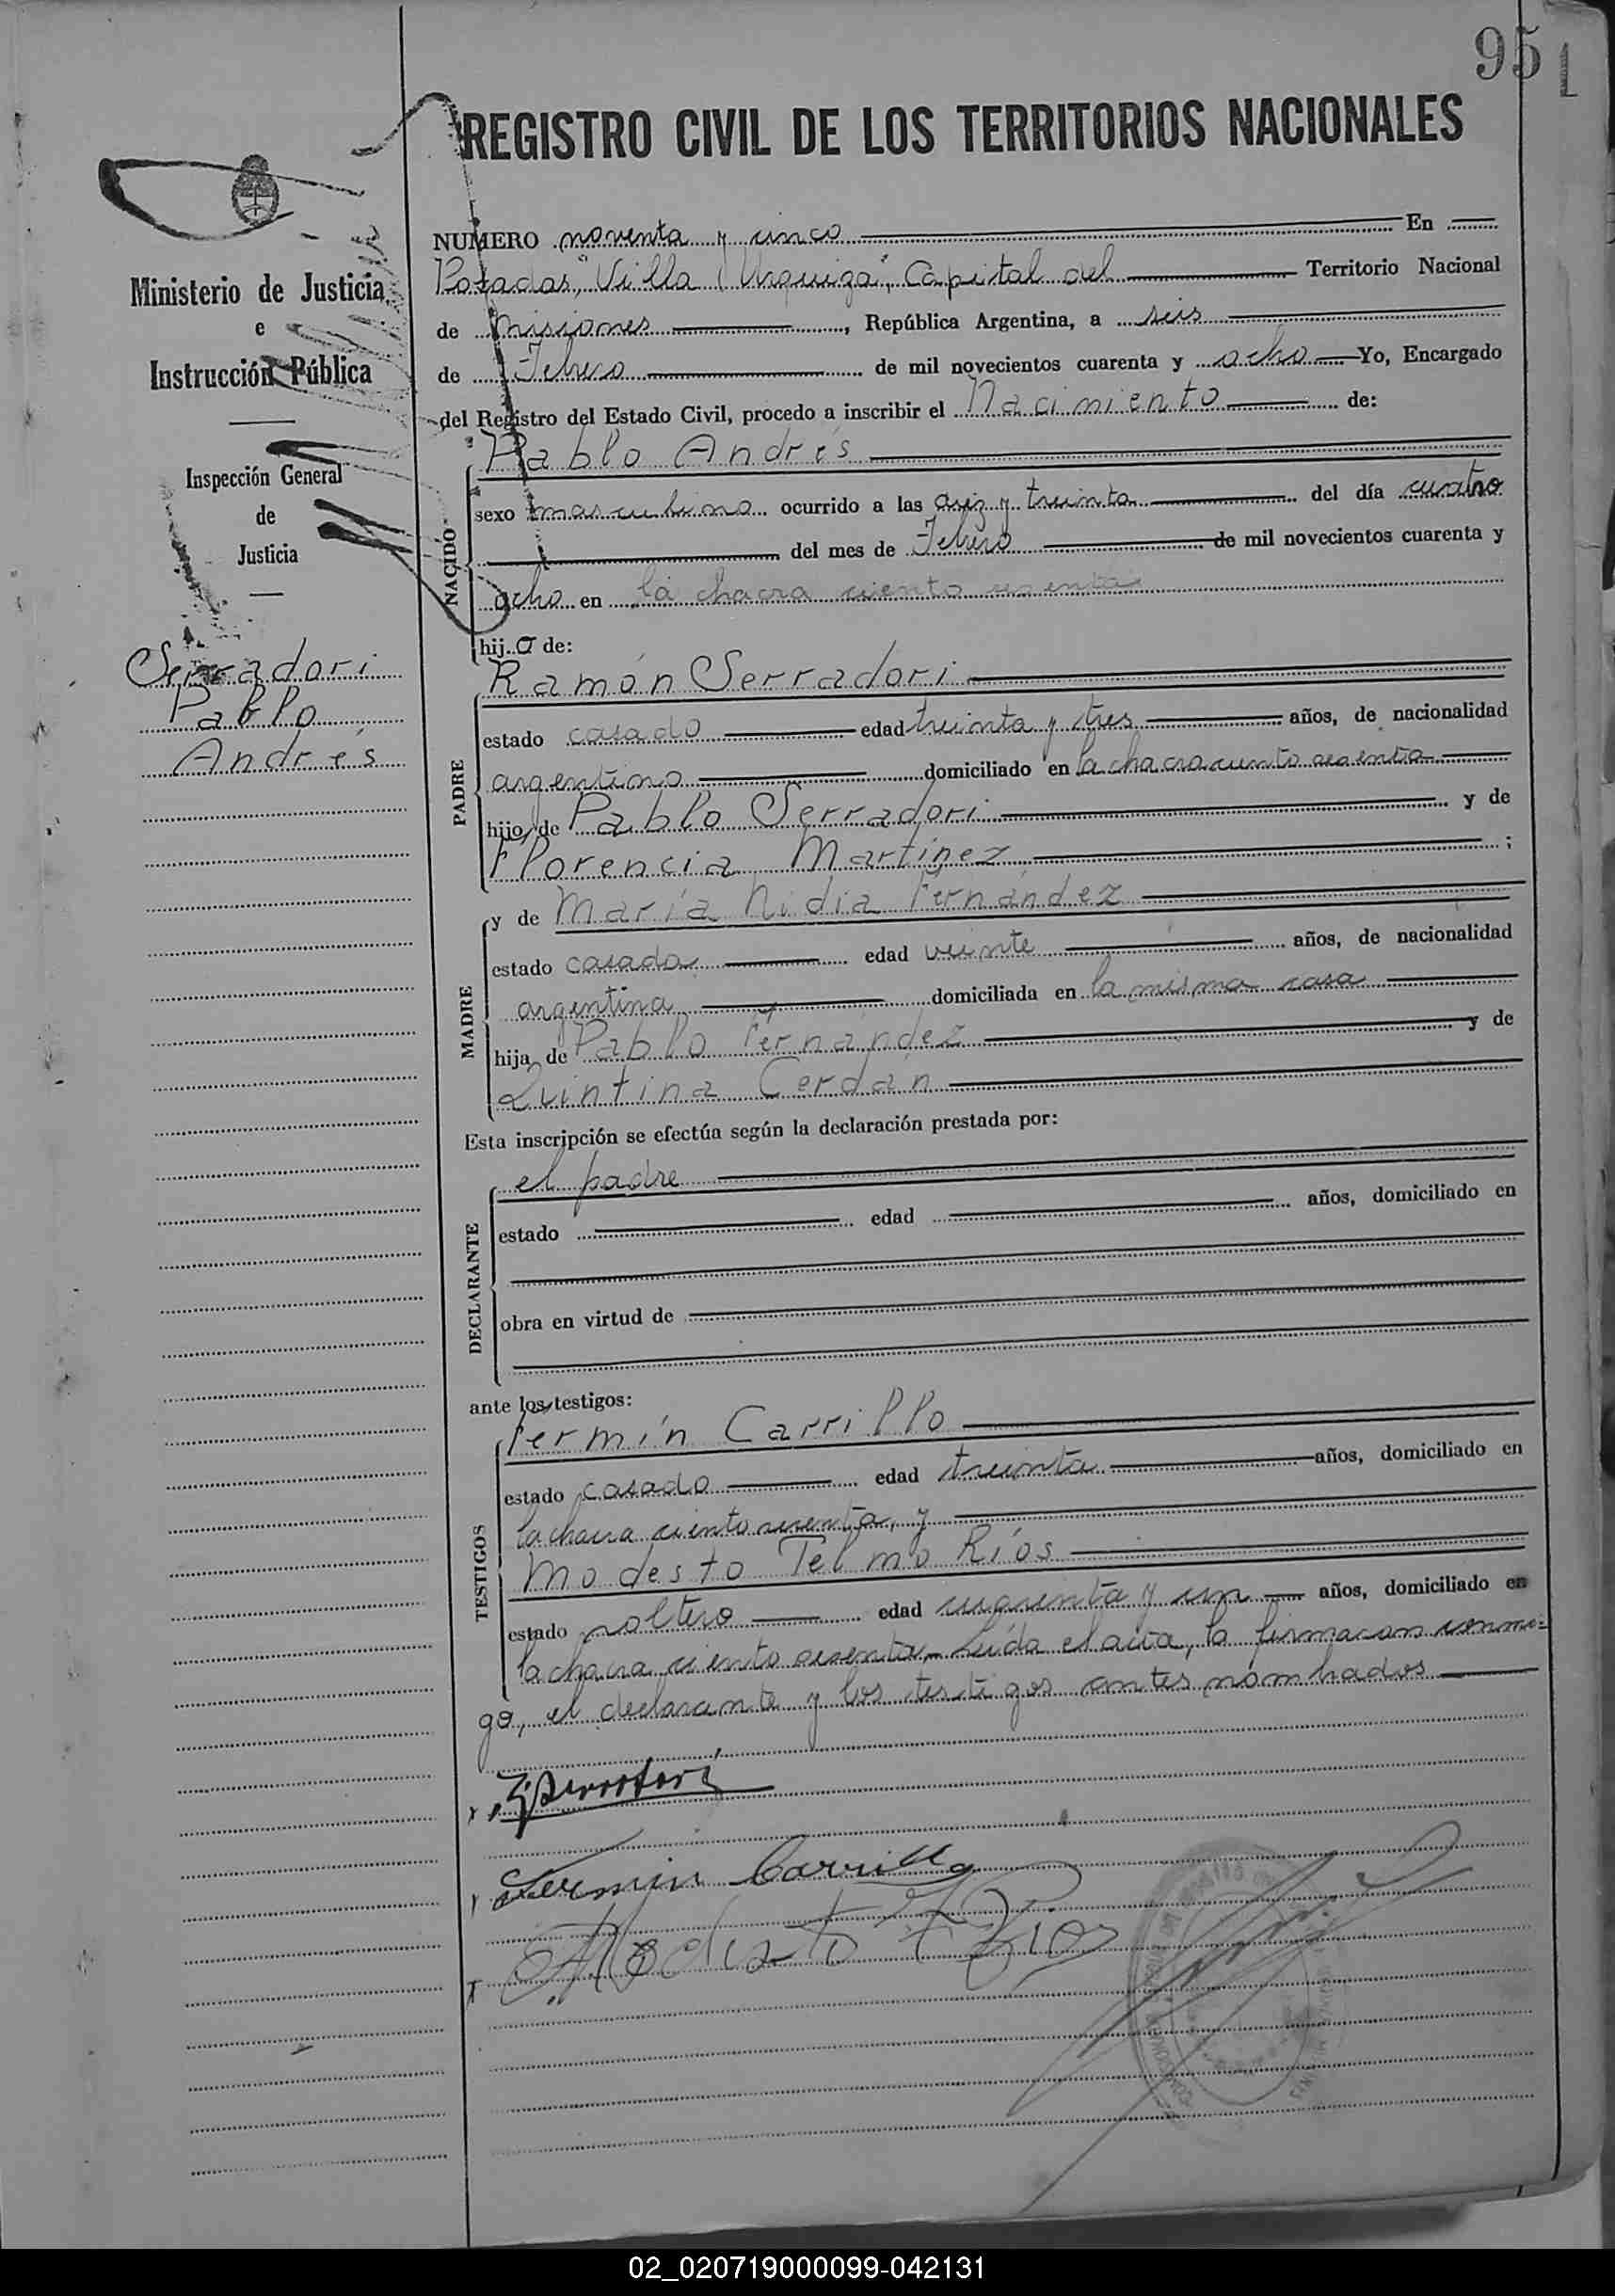 95 1
REGISTRO CIVIL DE LOS TERRITORIOS NACIONALES
Ministerio de Justicia
e
Instrucción Pública
Inspección General
de
Justicia
Serradori
Pablo
Andrés
NUMERO noventa y cinco En
Posadas, "Villa Urquiza", Capital del Territorio Nacional
de Misiones, República Argentina, a seis
de Febrero de mil novecientos cuarenta y ocho Yo, Encargado
del Registro del Estado Civil, procedo a inscribir el Nacimiento de:
NACIDO
Pablo Andrés
sexo masculino ocurrido a las diez y treinta del día cuatro
del mes de Febrero de mil novecientos cuarenta y
ocho en la chacra ciento sesenta
hijo de:
PADRE
Ramón Serradori
estado casado edad treinta y tres años, de nacionalidad
argentino domiciliado en la chacra ciento sesenta
hijo de Pablo Serradori y de
Florencia Martínez ;
MADRE
y de María Nidia Fernández
estado casada edad veinte años, de nacionalidad
argentina domiciliada en la misma casa
hija de Pablo Fernández y de
Quintina Cerdán
Esta inscripción se efectúa según la declaración prestada por:
DECLARANTE
el padre
estado edad años, domiciliado en
obra en virtud de
ante los testigos:
TESTIGOS
Fermín Carrillo
estado casado edad treinta años, domiciliado en
la chacra ciento sesenta, y
Modesto Telmo Ríos
estado soltero edad cuarenta y un años, domiciliado en
la chacra ciento sesenta. Leída el acta, la firmaron conmi=
go, el declarante y los testigos antes nombrados
Serradori
Fermin Carrillo
Modesto T Rios
02_020719000099-042131